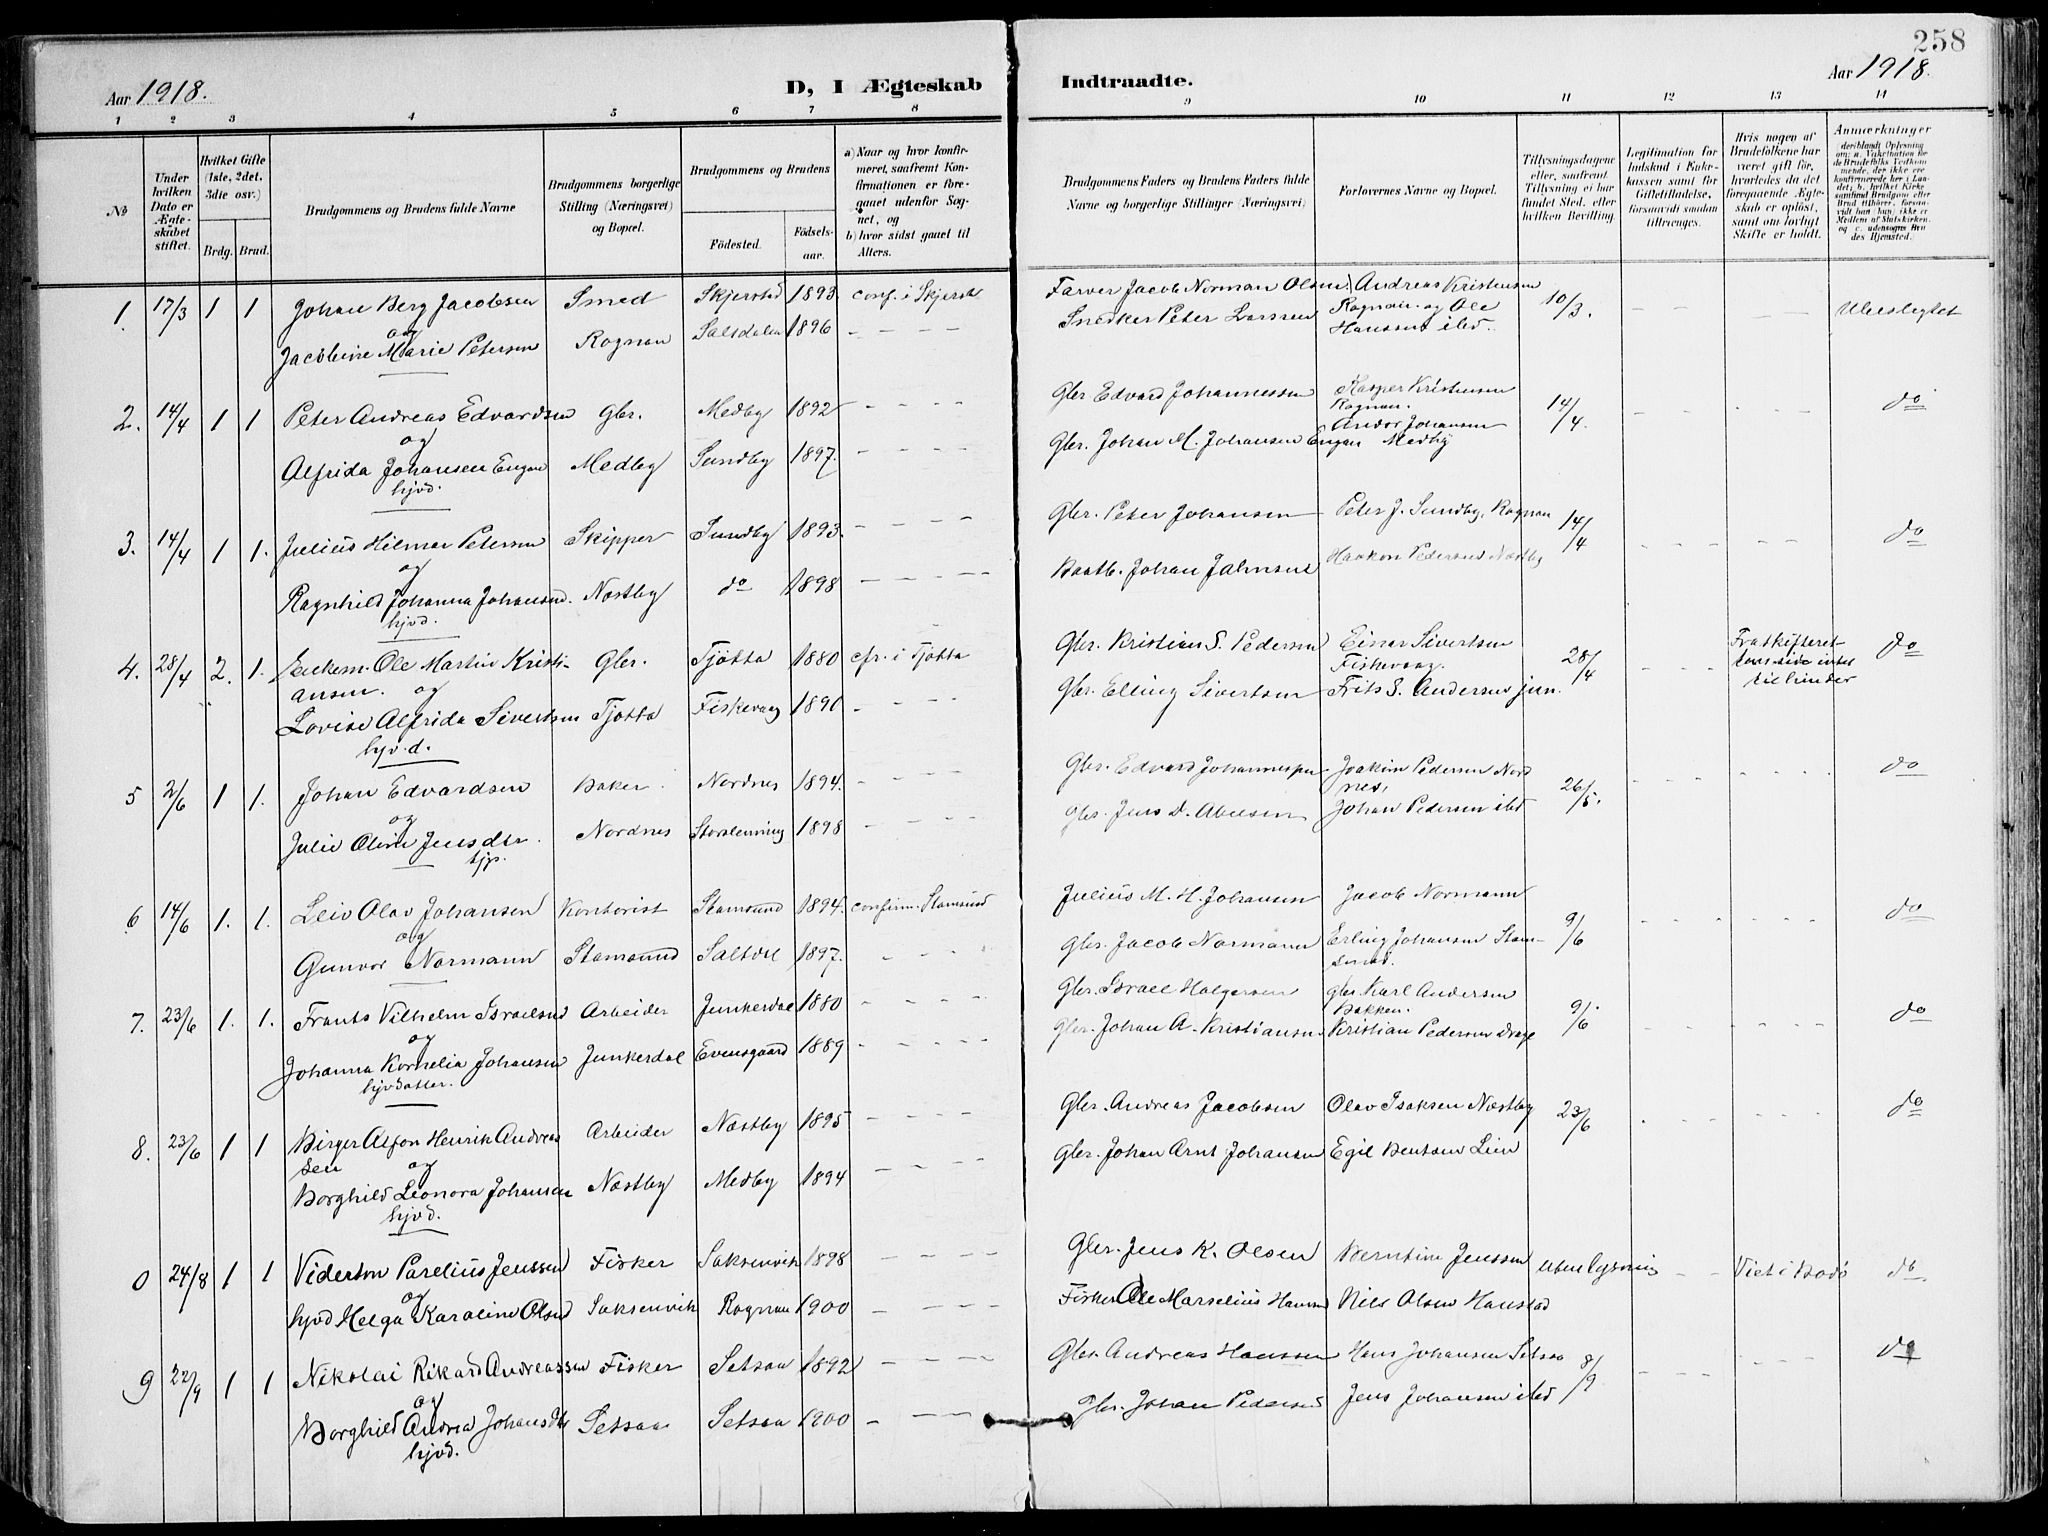 258
Aar 1918.
D, I Ægteskab
Indtraadte.
Aar 1918.
1 2 3 4 5 6 7 8 9 10 11 12 13 14
No
Under hvilken Dato er Ægteskabet stiftet.
Hvilket Gifte (1ste, 2det, 3die osv.)
Brdg. Brud.
Brudgommens og Brudens fulde Navne
Brudgommens borgerlige Stilling (Næringsvei) og Bopæl.
Brudgommens og Brudens
Födested.
Födselsaar.
a) Naar og hvor konfirmeret, saafremt Konfirmationen er foregaaet udenfor Sognet, og
b) hvor sidst gaaet til Alters.
Brudgommens Faders og Brudens Faders fulde Navne og borgerlige Stillinger (Næringsvei)
Forlovernes Navne og Bopæl.
Tillysningsdagene eller, saafremt Tillysning ei har fundet Sted, efter hvilken Bevilling.
Legitimation for Indskud i Enkekassen samt for Giftetilladelse, forsaavidt saadan tiltrænges.
Hvis nogen af Brudefolkene har været gift før, hvorledes da det foregaaende Ægteskab er opløst, samt om lovligt Skifte er holdt.
Anmærkninger
1. 17/3 1 1 Johan Berg Jacobsen Smed Skjerstad 1893 conf. i Skjerst. Farver Jacob Norman Olsen Andreas Kristensen 10/3. Ubeslegtet
og Rognan og Ole
Jacobine Marie Petersen Rognan Saltdalen 1896 Snedker Peter Larssen Hanssen ibd.
2. 14/4 1 1 Peter Andreas Edvardsen Gbr. Medby 1892 Gbr Edvard Johannessen Kasper Kristensen Rognan. 14/4. do
og
Alfrida Johansen Engan Medby Sundby 1897. Gbr. Johan M. Johansen Engan Andor Johansen Medby
hjvd.
3. 14/4 1 1. Julius Hilmar Petersen Skipper Sundby 1893. Gbr. Peter Johansen Peter J. Sundby, Rognan 14/4 do
og
Ragnhild Johanna Johansen. Næstby do 1898 Baatb. Johan Haakon Pedersen Næstby
hjvd.
4. 28/4 2. 1. Enkem. Ole Martin Kristiansen. Gbr. Tjøtta 1880 cfr. i Tjøtta Gbr. Kristian S. Pedersen Einar Sivertsen Fiskevaag. 28/4 do
og
Lovise Alfrida Sivertsen Tjøtta Fiskevaag 1890 Gbr. Elling Sivertsen Frits S. Andersen jun.
hjv.d.
5 2/6 1 1. Johan Edvardsen Baker. Nordnes 1894. Gbr. Edvard Johannessen Joakim Pedersen Nordnes, 26/5. do
og
Julie Oline Jensdtr. Nordnes 1898 Gbr. Jens D. Johan Pedersen ibd
tjp.
6 14/6 1. 1. Leiv Olav Johansen Kontorist Stamsund 1894. confirm. Stamsund Julius M. H. Johansen Jacob Normann 9/6 do
og
Gunvor Normann Stamsund Saltdal 1897. Gbr. Jacob Normann Erling Johansen Stamsund.
7. 23/6 1. 1. Frants Vilhelm Israelsen Arbeider Junkerdal 1880 Gbr. Israel Holgersen gbr. Karl Andersen Bakken. 9/6 do
og
Johanna Kornelia Johansen Junkerdal Evensgaard 1889 Gbr. Johan A. Kristiansen Kristian Pedersen Drage
hjvdatter.
8. 23/6 1 1 Birger Alfon Henrik Andreassen Arbeider Næstby 1895 Gbr. Andreas Jacobsen Olav Isaksen Næstby 23/6 do
og
Borghild Leonora Johansen Næstby Medby 1894 Gbr. Johan Arnt Johansen Egil Bentsen Lien
hjvd.
0 24/8 1 1 Parelius Jenssen Fisker Saksenvik 1898 Gbr. Jens K. Olsen Berntine Jenssen uten lysning Viet i Bodø do
og
hjvd Helga Karoline Olsen Saksenvik Rognan 1900 Fisker Ole Marselius Hansen Nils Olsen
9 22/9 1 1 Nikolai Rikard Andreassen Fisker Setsaa 1892 Gbr. Andreas Hanssen Hans Johansen Setsaa 8/9 do
og
Borghild Andrea Johansdtr Setsaa Setsaa 1900 Gbr. Johan Pedersen Jens Johansen ibd
hjvd.